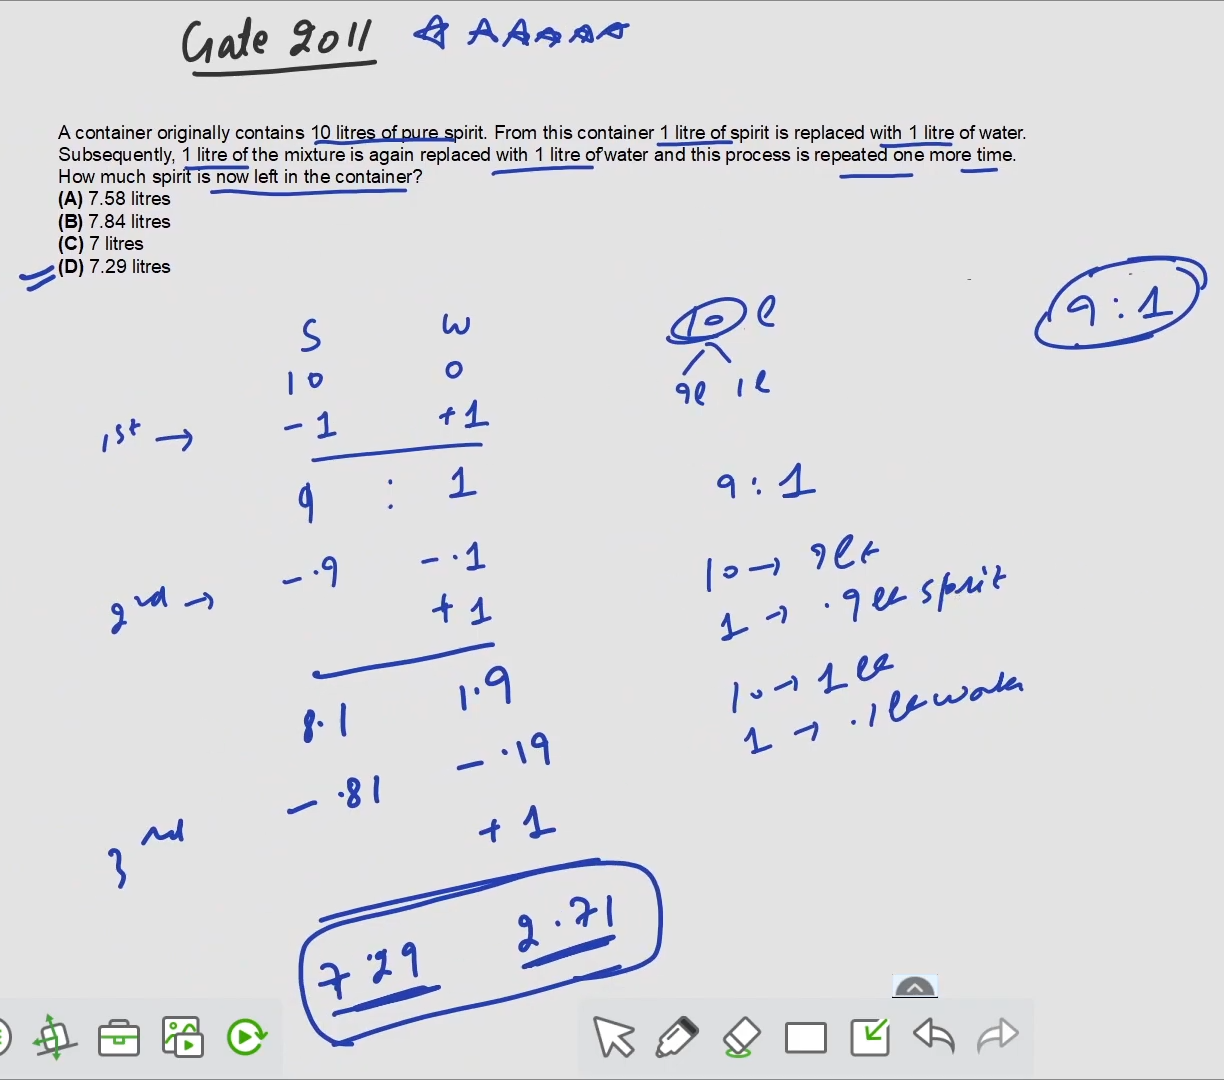 Gate 2011
A container originally contains 10 litres of pure spirit. From this container 1 litre of spirit is replaced with 1 litre of water.
Subsequently, 1 litre of the mixture is again replaced with 1 litre of water and this process is repeated one more time.
How much spirit is now left in the container?
(A) 7.58 litres
(B) 7.84 litres
(C) 7 litres
(D) 7.29 litres
9 : 1
S W
10 l
10 0
9l 1l
1st → - 1 + 1
9 : 1
9 : 1
- .9 - .1
10 → 9 lt
2nd → + 1
1 → .9 lt spirit
8.1 1.9
10 → 1 lt
1 → .1 lt water
- .81 - .19
3rd + 1
7.29 2.71